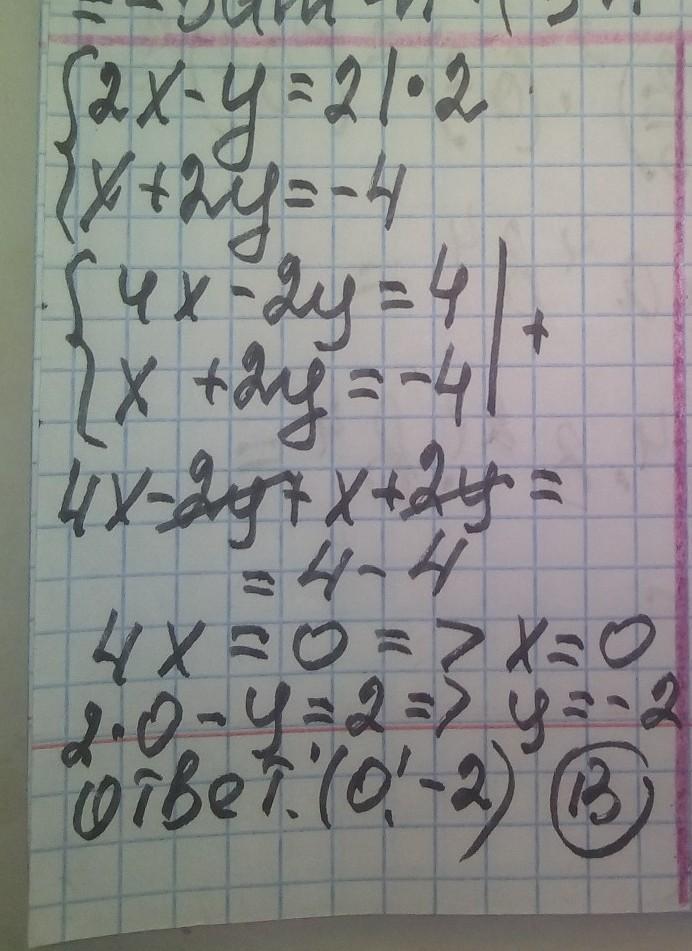 {2x-y=2|•2
{x+2y=-4
{4x-2y=4|+
{x+2y=-4|
4x-2y+x+2y=
=4-4
4x=0=>x=0
2•0-y=2=>y=-2
ответ:(0;-2) В